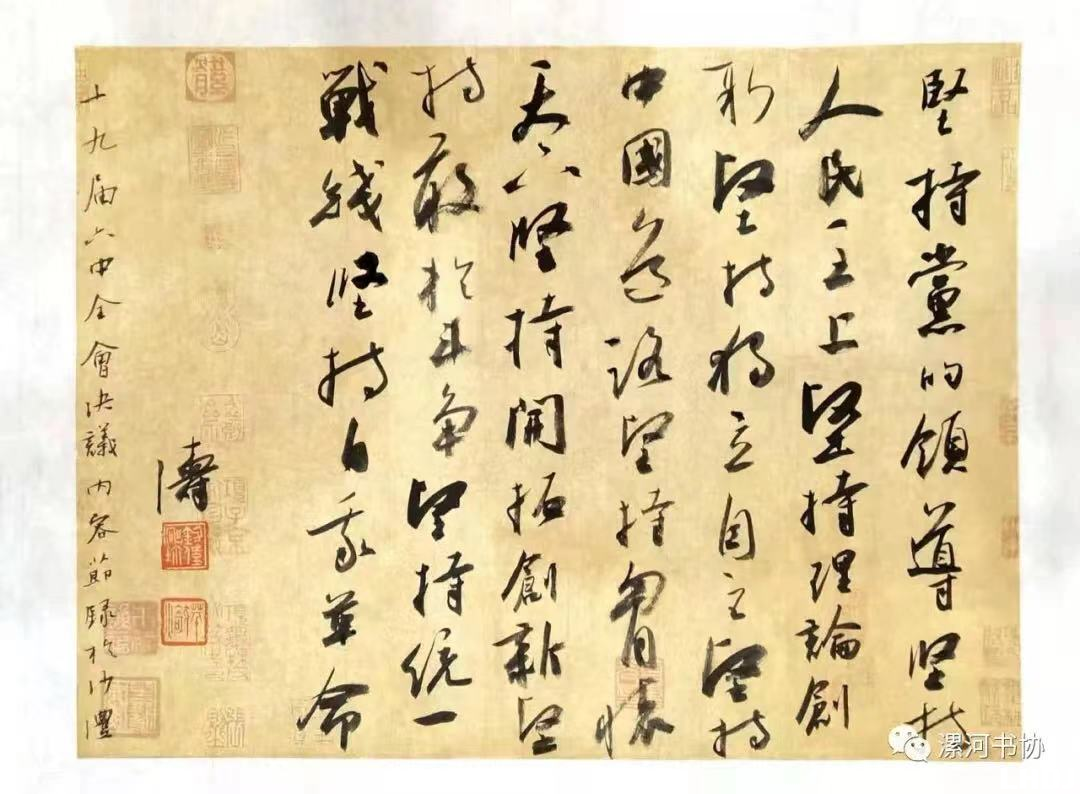 堅持黨的領導坚持
人民至上堅持理論創
新堅持独立自主堅持
中國道路堅持胷懷
天下堅持開拓創新堅
持敢於斗争堅持統一
戰线坚持自我革命
十九届六中全會决議内容節録於沙澧
濤
漯河书协